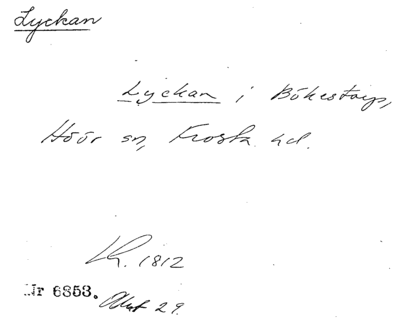 Lyckan
Lyckan i Bökestorp,
Höör sn, Frosta hd.
1812
Nr 6353.
Akt 29.